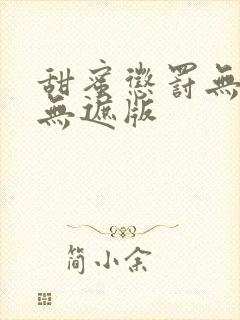 甜蜜懲罰無
無遮版
简小余